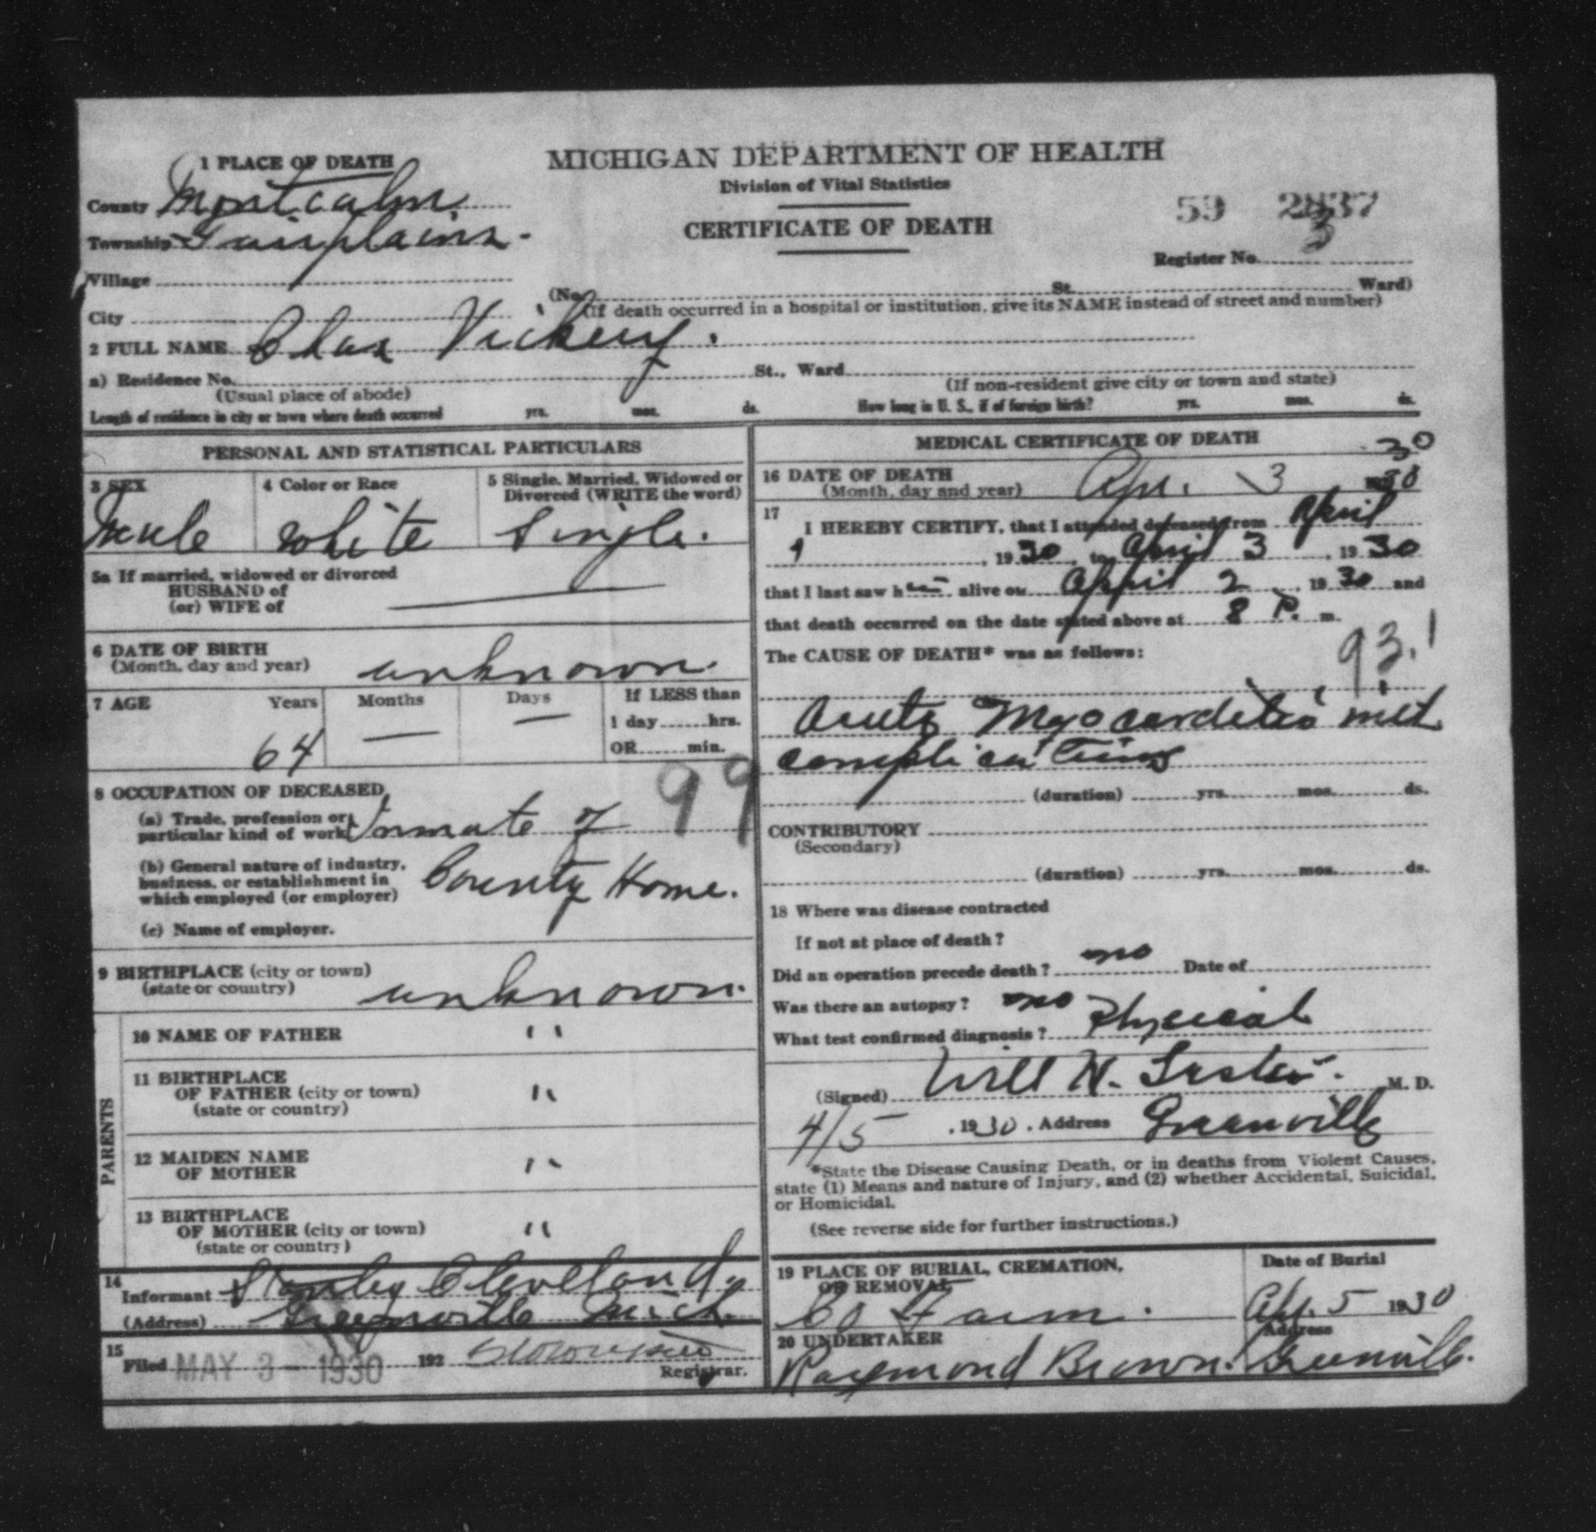 MICHIGAN DEPARTMENT OF HEALTH
Division of Vital Statistics
CERTIFICATE OF DEATH
59 2837
Register No. 3
1 PLACE OF DEATH
County Montcalm.
Township Fairplains.
Village
City
(No. St. Ward)
(If death occurred in a hospital or institution, give its NAME instead of street and number)
2 FULL NAME Chas Vickery.
a) Residence No. St., Ward
(Usual place of abode) (If non-resident give city or town and state)
Length of residence in city or town where death occurred yrs. mos. ds. How long in U. S., if of foreign birth? yrs. mos. ds.
PERSONAL AND STATISTICAL PARTICULARS
3 SEX 4 Color or Race 5 Single, Married, Widowed or
Divorced (WRITE the word)
Male white Single.
5a If married, widowed or divorced
HUSBAND of
(or) WIFE of
6 DATE OF BIRTH
(Month, day and year) unknown.
7 AGE Years Months Days If LESS than
1 day hrs.
OR min.
64 — —
8 OCCUPATION OF DECEASED
99
(a) Trade, profession or
particular kind of work Inmate of
(b) General nature of industry,
business, or establishment in
which employed (or employer) County Home.
(c) Name of employer.
9 BIRTHPLACE (city or town)
(state or country) unknown.
PARENTS
10 NAME OF FATHER "
11 BIRTHPLACE
OF FATHER (city or town) "
(state or country)
12 MAIDEN NAME
OF MOTHER "
13 BIRTHPLACE
OF MOTHER (city or town) "
(state or country)
14
Informant Stanley Cleveland.
(Address) Greenville Mich.
15
Filed MAY 3 - 1930 192
Registrar.
MEDICAL CERTIFICATE OF DEATH
30
16 DATE OF DEATH
(Month, day and year) Apr. 3 30
17
I HEREBY CERTIFY, that I attended deceased from April
1, 1930, to April 3, 1930
that I last saw h alive on April 2, 1930 and
that death occurred on the date stated above at 8 P. m.
The CAUSE OF DEATH* was as follows:
93.1
Acute Myocarditis with
complications
(duration) yrs. mos. ds.
CONTRIBUTORY
(Secondary)
(duration) yrs. mos. ds.
18 Where was disease contracted
If not at place of death?
Did an operation precede death? no Date of
Was there an autopsy? no
What test confirmed diagnosis? Physical
(Signed) Will H. M. D.
4/5, 1930. Address Greenville
*State the Disease Causing Death, or in deaths from Violent Causes,
state (1) Means and nature of Injury, and (2) whether Accidental, Suicidal,
or Homicidal.
(See reverse side for further instructions.)
19 PLACE OF BURIAL, CREMATION,
OR REMOVAL
Date of Burial
Co Farm. Ap. 5 1930
20 UNDERTAKER Address
Raymond Brown. Greenville.